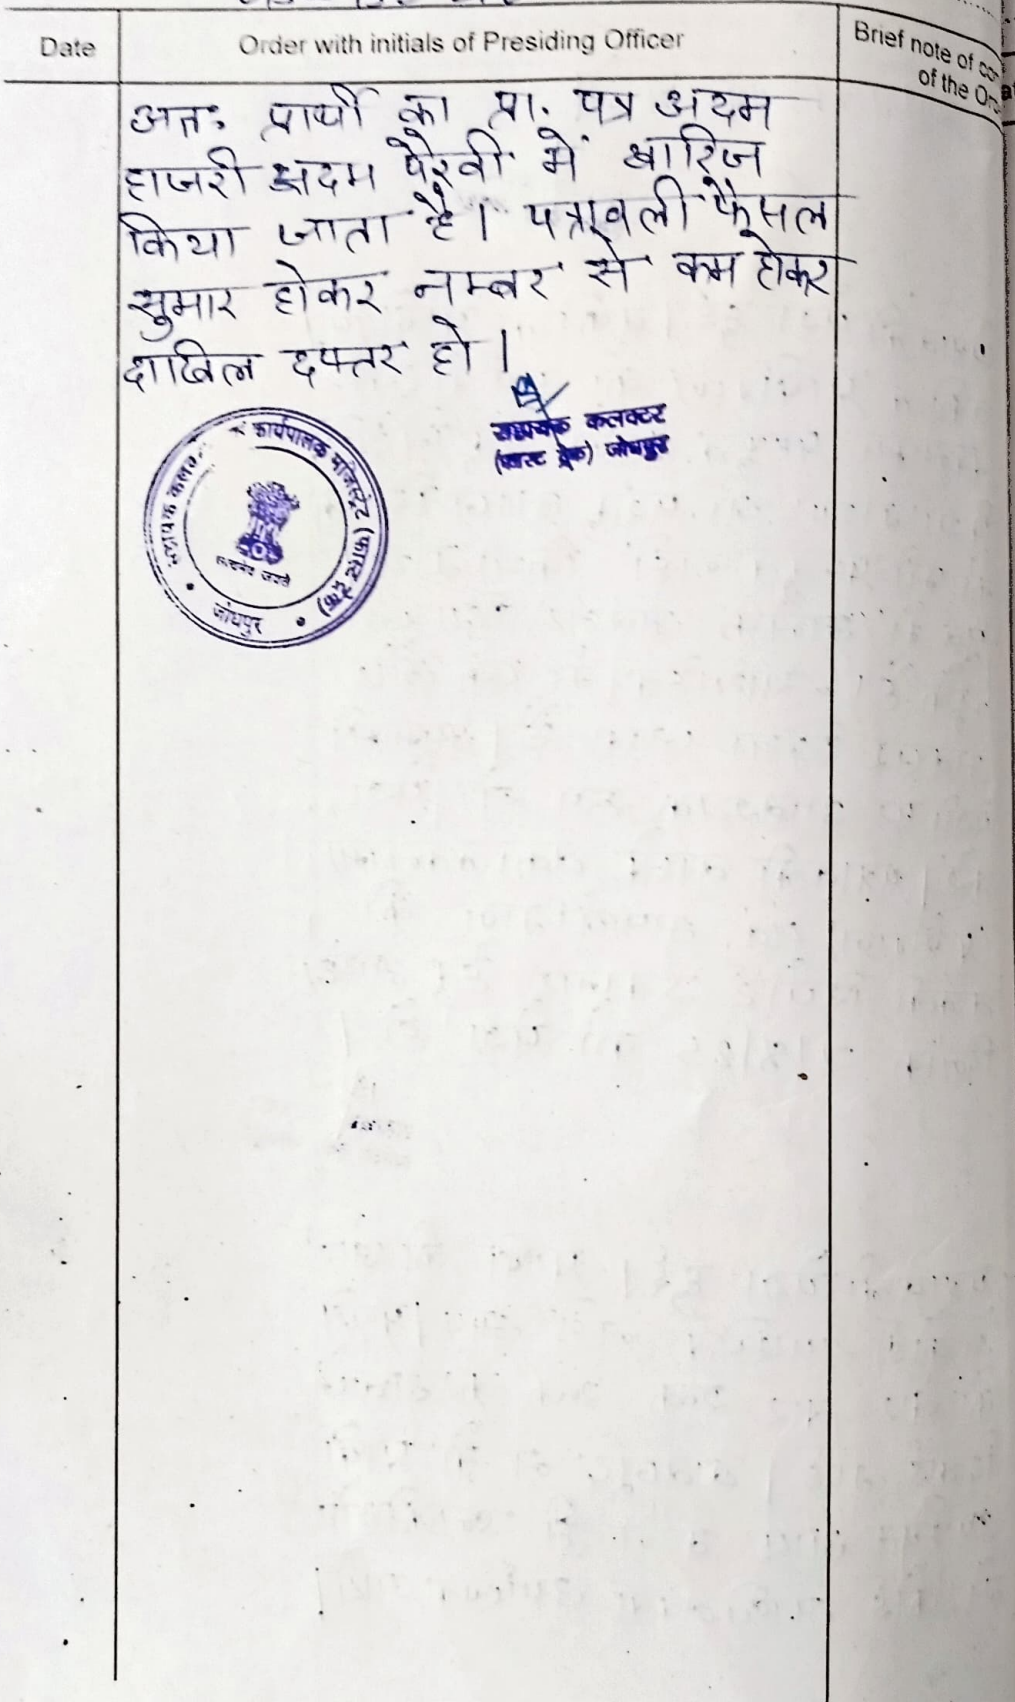 Date
Order with initials of Presiding Officer
Brief note of
of the
अतः प्रार्थी का प्रा. पत्र अदम
हाजरी अदम पैरवी में खारिज
किया जाता है। पत्रावली फैसल
सुमार होकर नम्बर से कम होकर
दाखिल दफ्तर हो।
सहायक कलक्टर
(फास्ट ट्रेक) जोधपुर
कार्यपालक मजिस्ट्रेट (फास्ट ट्रेक)
सत्यमेव जयते
जोधपुर